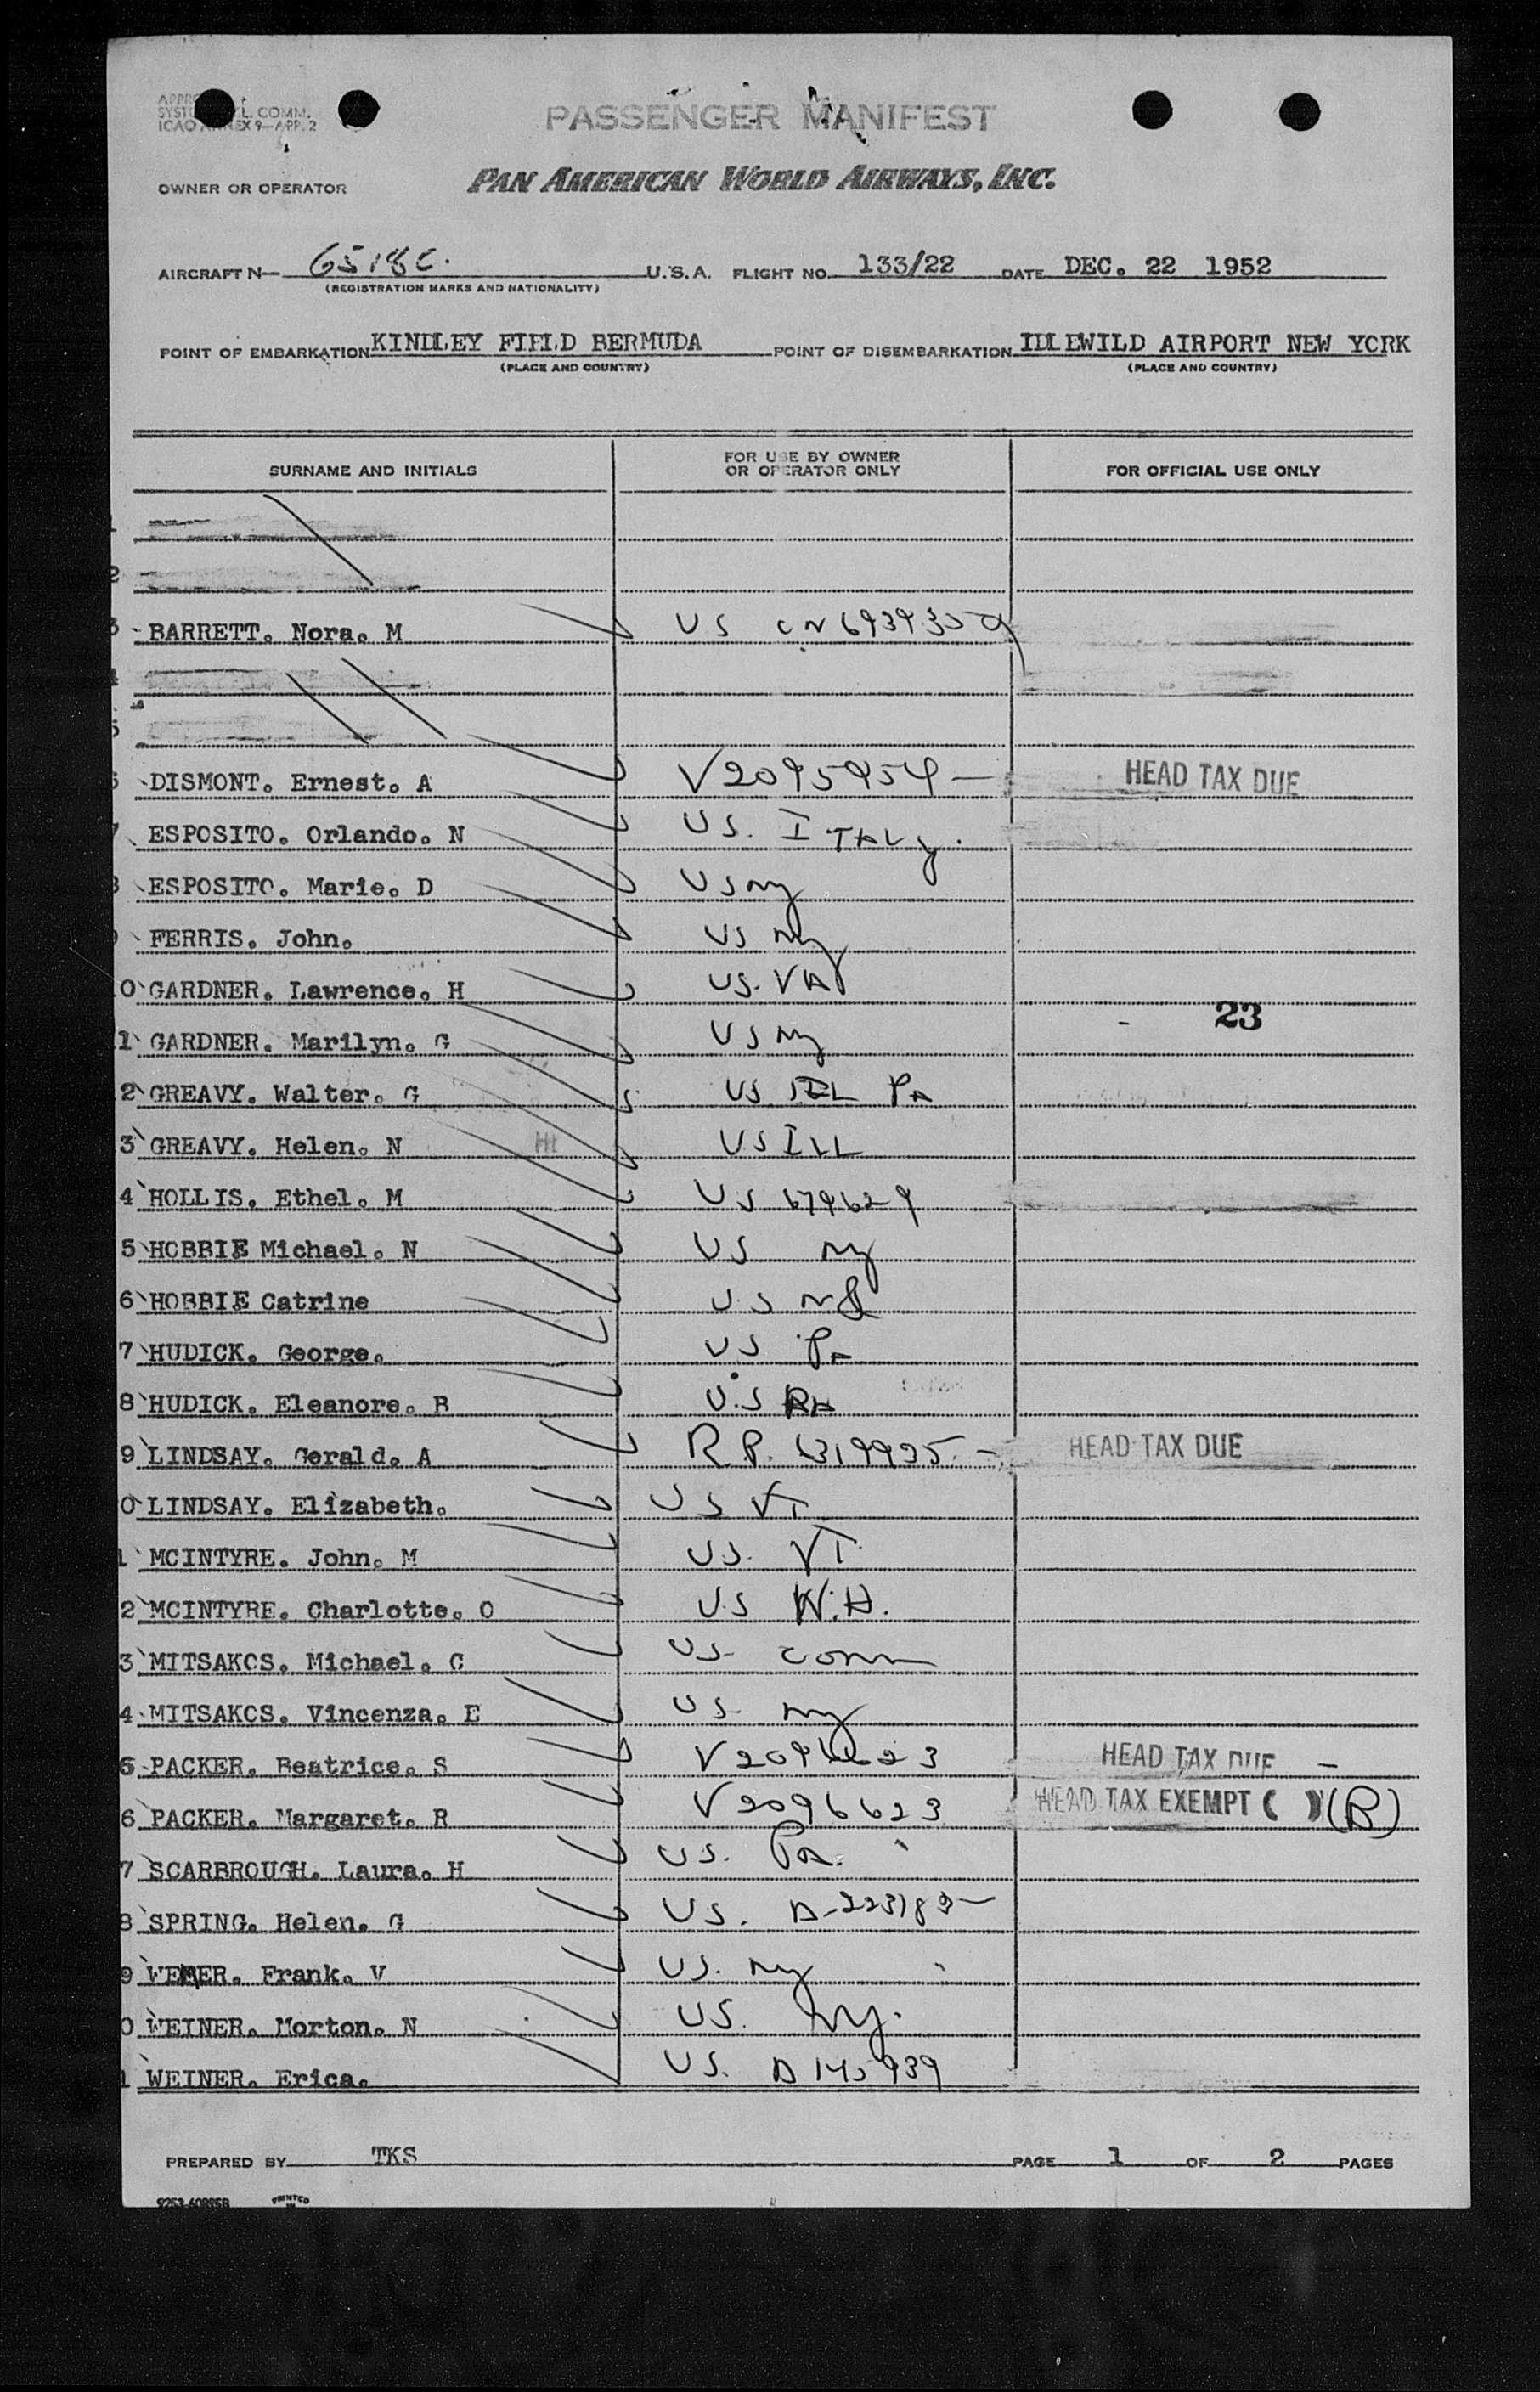 PASSENGER MANIFEST
L. COMM.
ICAO ANNEX 9—APP. 2
OWNER OR OPERATOR PAN AMERICAN WORLD AIRWAYS, INC.
AIRCRAFT N— 6518C. U.S.A. FLIGHT NO. 133/22 DATE DEC. 22 1952
(REGISTRATION MARKS AND NATIONALITY)
POINT OF EMBARKATION KINDLEY FIELD BERMUDA POINT OF DISEMBARKATION IDLEWILD AIRPORT NEW YORK
(PLACE AND COUNTRY) (PLACE AND COUNTRY)
SURNAME AND INITIALS FOR USE BY OWNER OR OPERATOR ONLY FOR OFFICIAL USE ONLY
2
BARRETT. Nora. M US
DISMONT. Ernest. A V2095954 — HEAD TAX DUE
ESPOSITO. Orlando. N US. ITALY.
ESPOSITO. Marie. D US NY
FERRIS. John. US NY
0 GARDNER. Lawrence. H US. VA
23
1 GARDNER. Marilyn. G US NY
2 GREAVY. Walter. G US ILL PA
3 GREAVY. Helen. N US ILL
4 HOLLIS. Ethel. M US 679629
5 HOBBIE Michael. N US NY
6 HOBBIE Catrine US NJ
7 HUDICK. George. US Pa
8 HUDICK. Eleanore. B U.S PA
9 LINDSAY. Gerald. A R.P. 6319935 — HEAD TAX DUE
0 LINDSAY. Elizabeth. US VT
1 MCINTYRE. John. M US. VT
2 MCINTYRE. Charlotte. O US N.H.
3 MITSAKOS. Michael. C US- Conn
4 MITSAKOS. Vincenza. E US- NY
5 PACKER. Beatrice. S V2096623 HEAD TAX DUE —
6 PACKER. Margaret. R V2096623 HEAD TAX EXEMPT ( ) (B)
7 SCARBROUGH. Laura. H US. Pa.
8 SPRING. Helen. G US. D-223183—
9 Frank. V US. NY
0 WEINER. Morton. N US. NY.
1 WEINER. Erica. US. D145939
PREPARED BY TKS PAGE 1 OF 2 PAGES
PRINTED